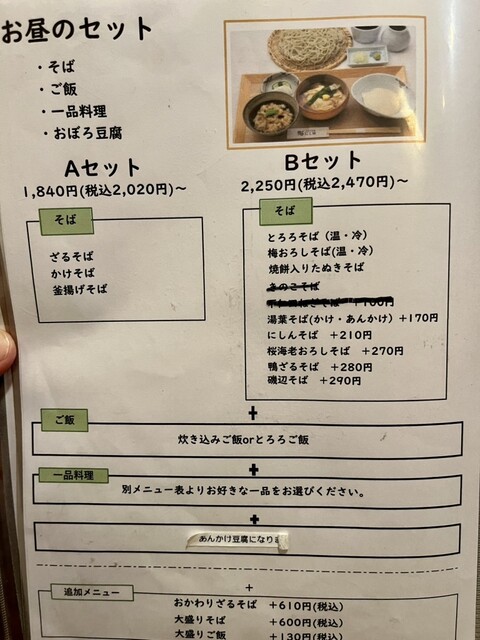 お昼のセット
・そば
・ご飯
・一品料理
・おぼろ豆腐
Aセット
1,840円(税込2,020円)～
そば
ざるそば
かけそば
釜揚げそば
Bセット
2,250円(税込2,470円)～
そば
とろろそば（温・冷）
梅おろしそば(温・冷)
焼餅入りたぬきそば
きのこそば
+100円
湯葉そば(かけ・あんかけ）+170円
にしんそば　+210円
桜海老おろしそば　+270円
鴨ざるそば　+280円
磯辺そば　+290円
+
ご飯
炊き込みご飯orとろろご飯
+
一品料理
別メニュー表よりお好きな一品をお選びください。
+
あんかけ豆腐になりま
+
追加メニュー
おかわりざるそば　+610円(税込)
大盛りそば　+600円(税込)
大盛りご飯　+130円(税込)